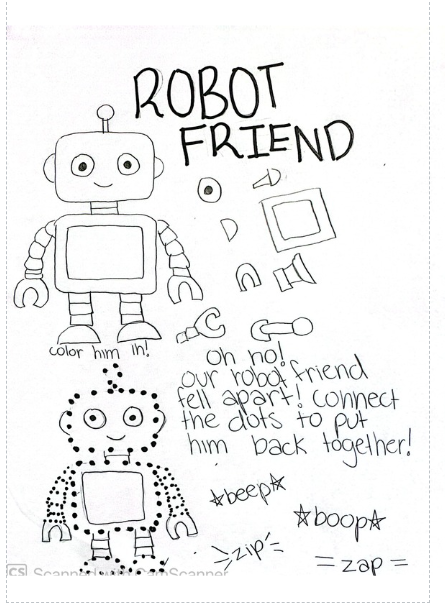 ROBOT
FRIEND
color him in!
oh no!
our robot friend
fell apart! Connect
the dots to put
him back together!
☆beep☆
☆boop☆
zip
= zap =
CS Scanned with CamScanner